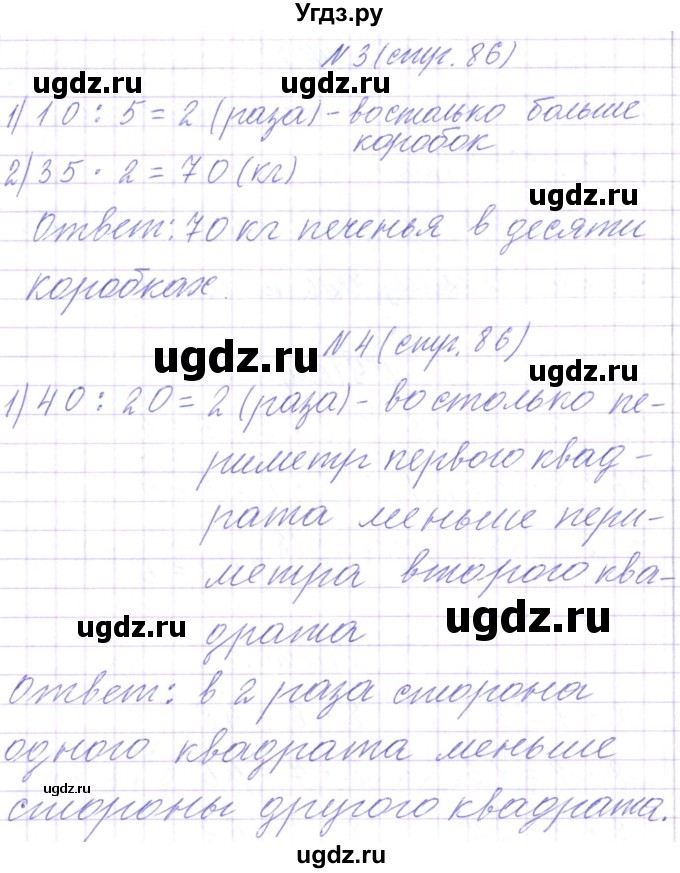 Угдз.ру
N 3 (стр. 86)
ugdz.ru
1) 10 : 5 = 2 (раза) - востолько больше
коробок
2) 35 · 2 = 70 (кг)
ugdz.ru
Ответ: 70 кг печенья в десяти
коробках.
N 4 (стр. 86)
ugdz.ru
ugdz.ru
1) 40 : 20 = 2 (раза) - востолько пе-
риметр первого квад-
рата меньше пери-
метра второго ква-
ugdz.ru
ugdz.ru
драта
Ответ: в 2 раза сторона
одного квадрата меньше
ugdz.ru
стороны другого квадрата.
ugdz.ru